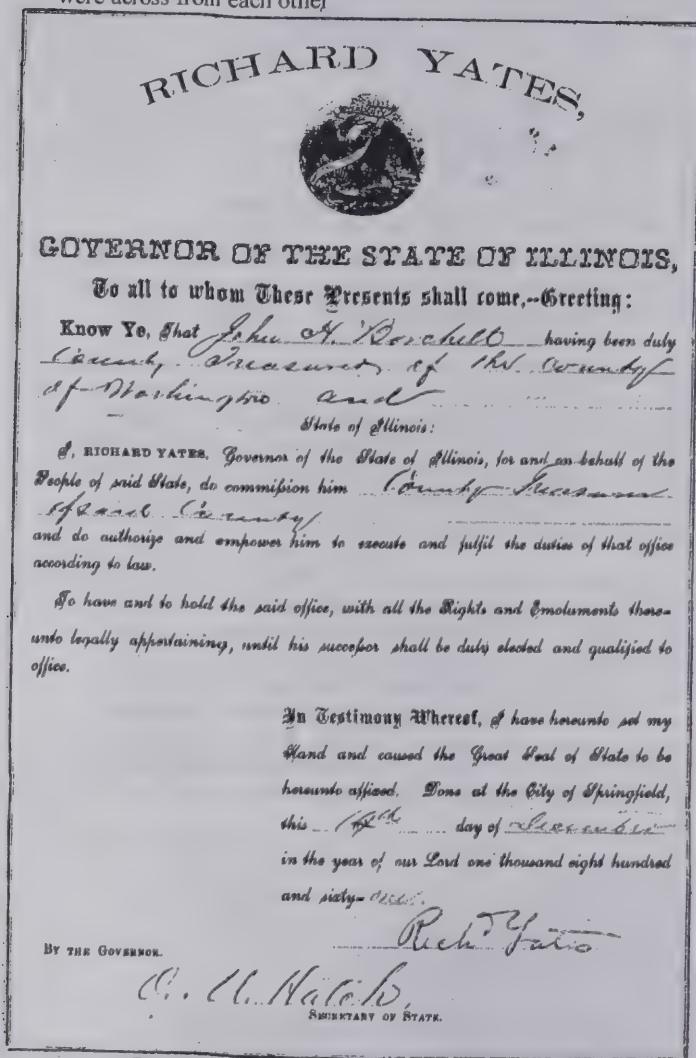 were across from each other
RICHARD YATES,
GOVERNOR OF THE STATE OF ILLINOIS,
To all to whom These Presents shall come,--Greeting:
Know Ye, That John H. Borchelt having been duly
County Treasurer of the County
of Washington and
State of Illinois:
I, RICHARD YATES, Governor of the State of Illinois, for and on behalf of the
People of said State, do commission him County Treasurer
of said County
and do authorize and empower him to execute and fulfil the duties of that office
according to law.
To have and to hold the said office, with all the Rights and Emoluments there-
unto legally appertaining, until his successor shall be duly elected and qualified to
office.
In Testimony Whereof, I have hereunto set my
Hand and caused the Great Seal of State to be
hereunto affixed. Done at the City of Springfield,
this day of December
in the year of our Lord one thousand eight hundred
and sixty-one.
Richd Yates
BY THE GOVERNOR.
O. M. Hatch,
SECRETARY OF STATE.